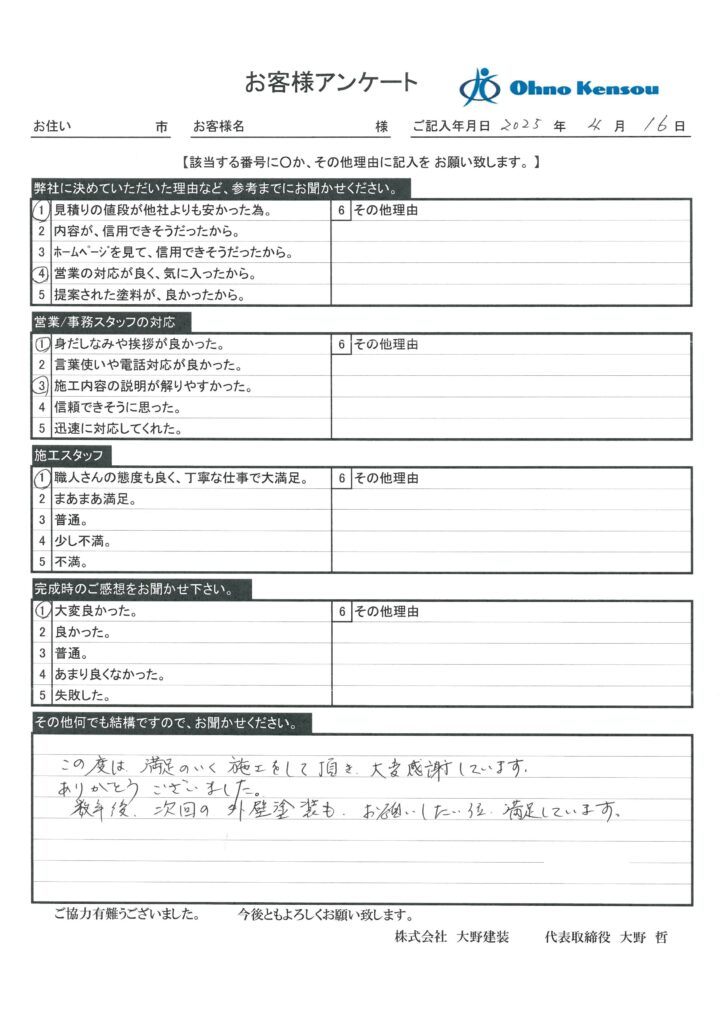 お客様アンケート
Ohno Kensou
お住い 市 お客様名 様 ご記入年月日 2025 年 4 月 16 日
【該当する番号に〇か、その他理由に記入を お願い致します。】
弊社に決めていただいた理由など、参考までにお聞かせください。
1 見積りの値段が他社よりも安かった為。 6 その他理由
2 内容が、信用できそうだったから。
3 ホームページを見て、信用できそうだったから。
4 営業の対応が良く、気に入ったから。
5 提案された塗料が、良かったから。
営業/事務スタッフの対応
1 身だしなみや挨拶が良かった。 6 その他理由
2 言葉使いや電話対応が良かった。
3 施工内容の説明が解りやすかった。
4 信頼できそうに思った。
5 迅速に対応してくれた。
施工スタッフ
1 職人さんの態度も良く、丁寧な仕事で大満足。 6 その他理由
2 まあまあ満足。
3 普通。
4 少し不満。
5 不満。
完成時のご感想をお聞かせ下さい。
1 大変良かった。 6 その他理由
2 良かった。
3 普通。
4 あまり良くなかった。
5 失敗した。
その他何でも結構ですので、お聞かせください。
この度は、満足のいく施工をして頂き、大変感謝しています。
ありがとうございました。
数年後、次回の外壁塗装も、お願いしたい位、満足しています。
ご協力有難うございました。 今後ともよろしくお願い致します。
株式会社 大野建装 代表取締役 大野 哲